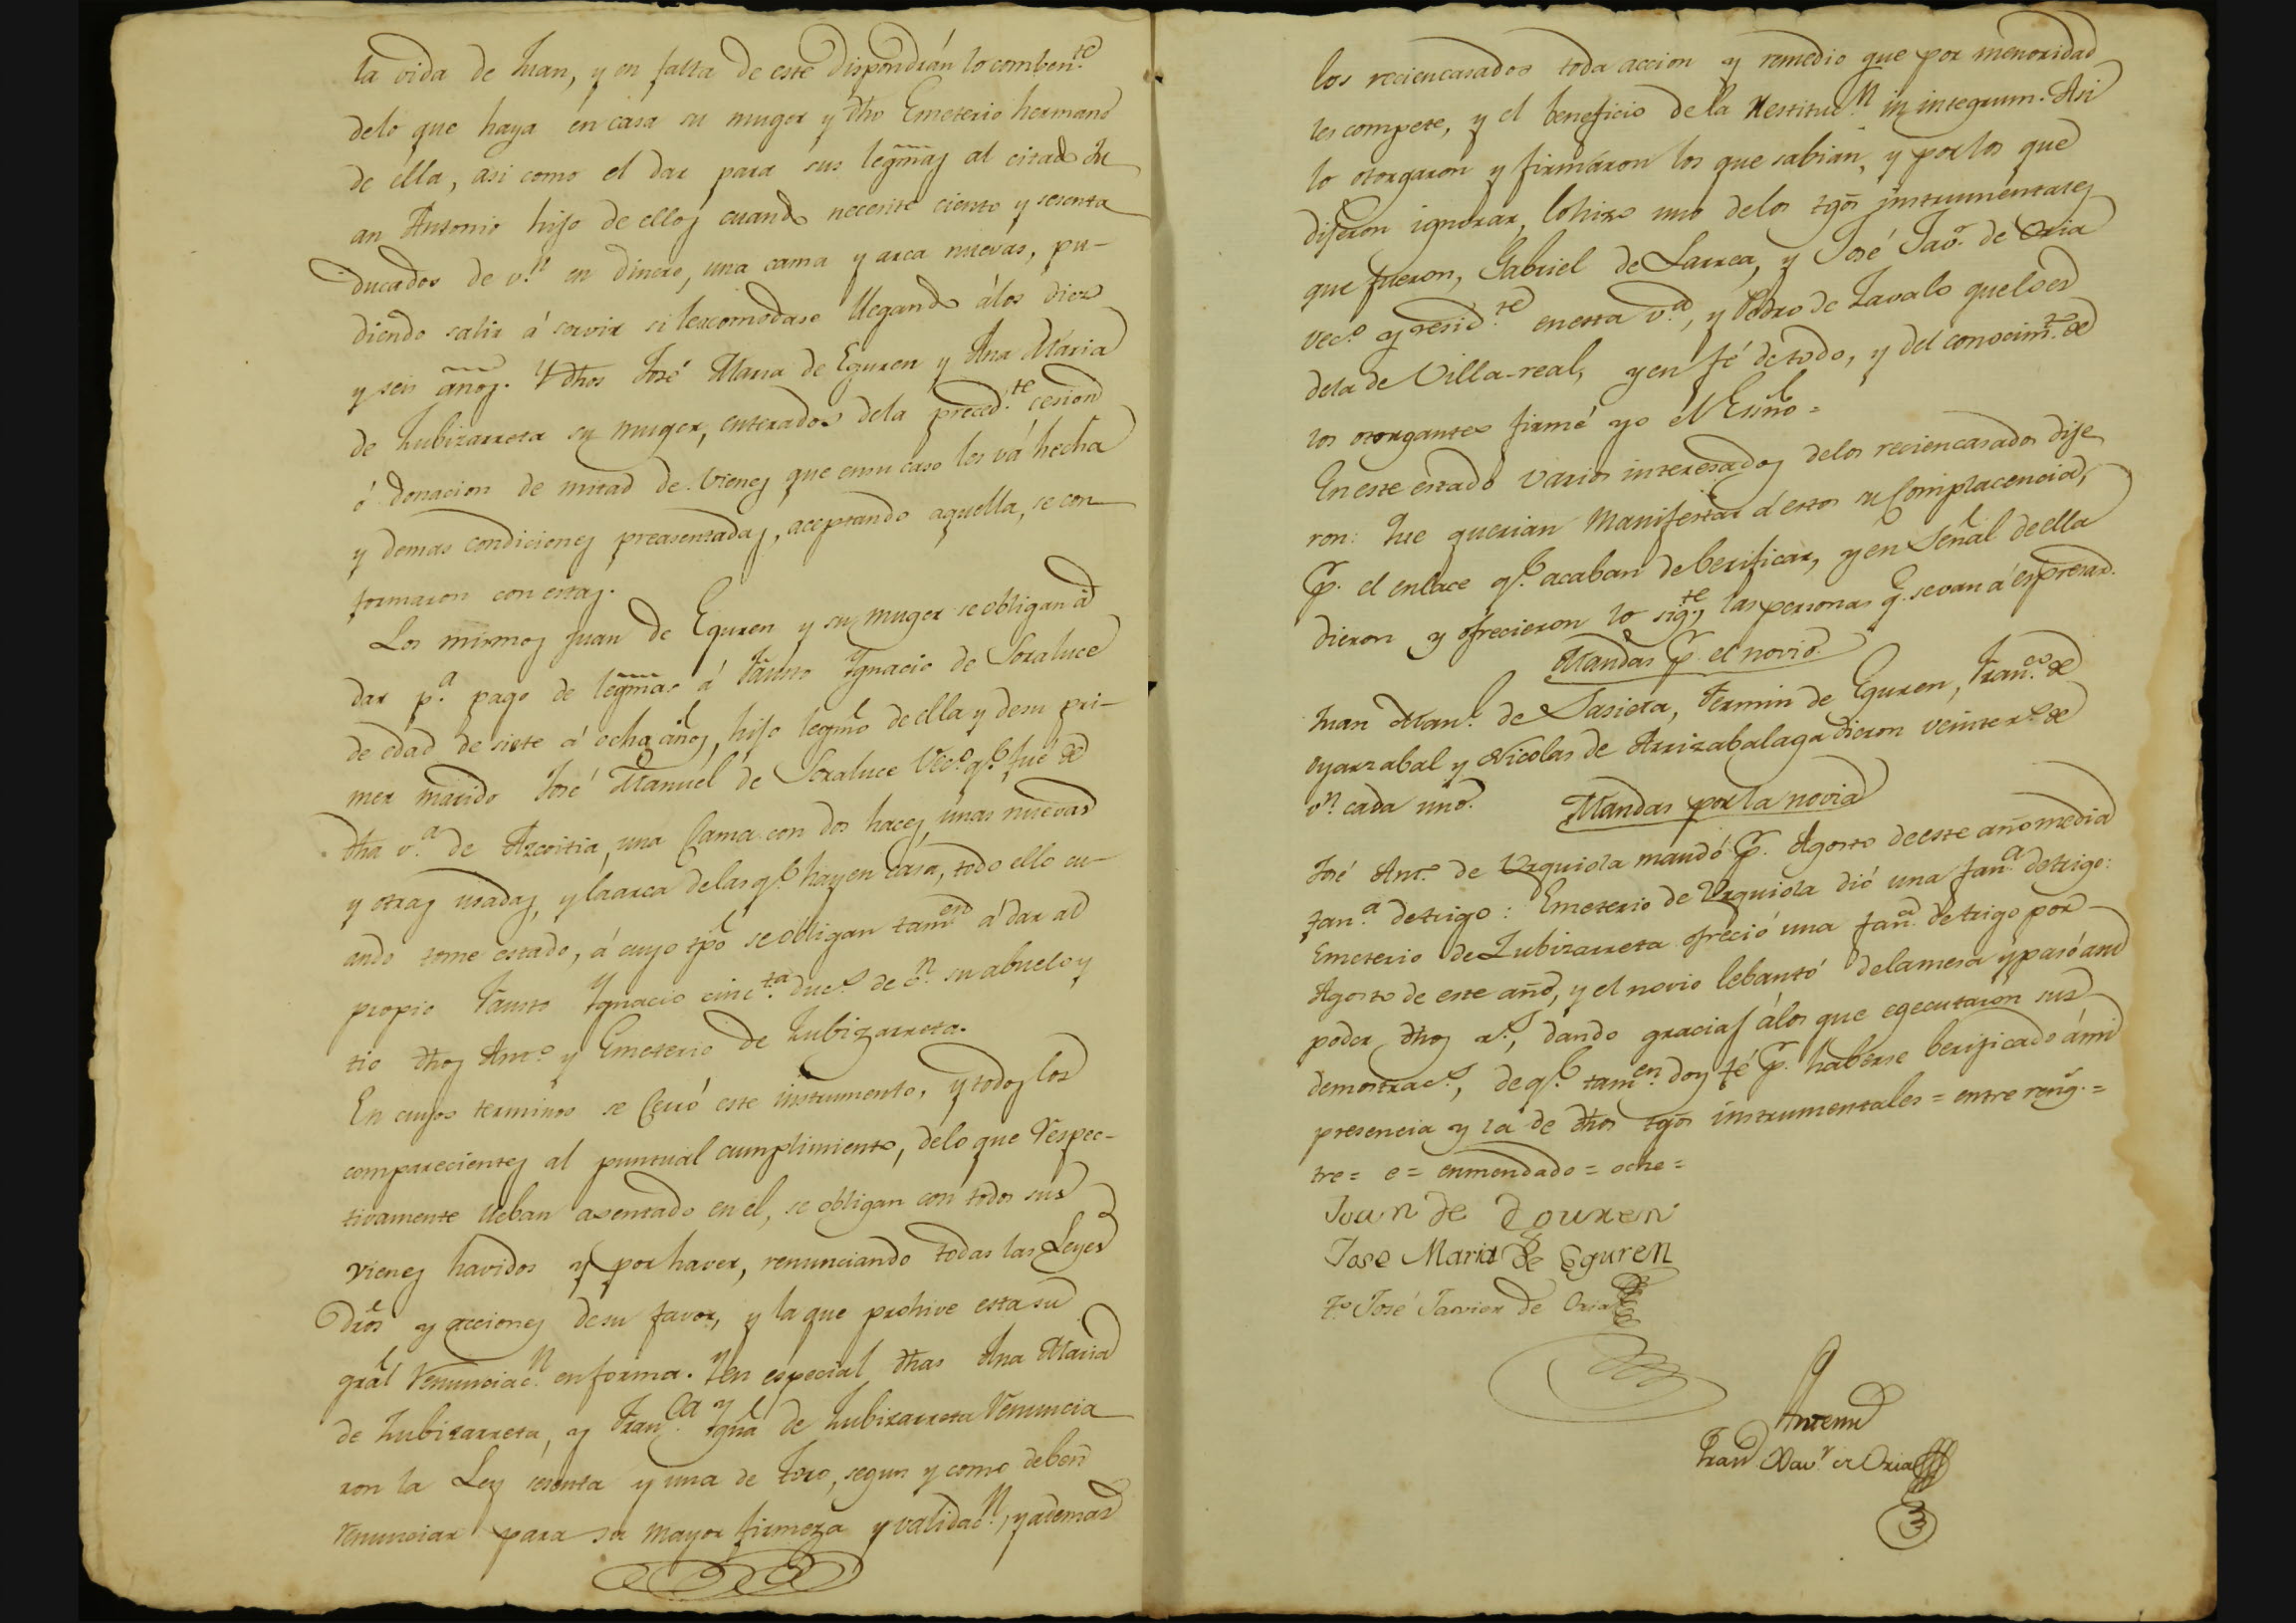 la vida de Juan, y en falta de este dispondrán lo comben.te
delo que haya en casa su muger y dho Emeterio hermano
de élla, asi como el dar para sus legmas al citado Ju
an Antonio hijo de ellos cuando necesite ciento y sesenta
ducados de v.n en dinero, una cama y arca nuevas, pu-
diendo salir á servir si le acomodase llegando álos diez
y seis años. Y dhos José Maria de Eguren y Ana Maria
de Zubizarreta su muger, enterados dela preced.te cesion
ó donacion de mitad de vienes que en su caso les vá hecha
y demas condiciones preasentadas, aceptando aquella, se con
formaron con estas.
Los mismos Juan de Eguren y su muger se obligan á
dar p.a pago de legmas á Fausto Ygnacio de Soraluce
de edad de siete á ocho años, hijo legmo de ella y de su pri-
mer marido José Manuel de Soraluce Vec.o q.e fué de
dha v.a de Azcoitia, una Cama con dos haces, unas nuevas
y otras usadas, y la arca delas q.e hay en casa, todo ello cu-
ando tome estado, á cuyo tpo se obligan tam.en á dar al
propio Fausto Ygnacio cinc.ta duc.s de v.n su abuelo y
tio dhos Ant.o y Emeterio de Zubizarreta.
En cuyos terminos se Cerró este instrumento, y todos los
comparecientes al puntual cumplimiento, delo que respec-
tivamente lleban asentado en él, se obligan con todos sus
vienes havidos y por haver, renunciando todas las Leyes
dros y acciones de su favor, y la que prohive esta su
gral renunciac.n en forma. Y en especial dhas Ana Maria
de Zubizarreta, y Fran.ca Ygna de Zubizarreta renuncia
ron la Ley sesenta y una de Toro, segun y como deben
renunciar para su mayor firmeza y validac.n, y ademas
los reciencasados toda accion y remedio que por menoridad
les compete, y el beneficio de la Restituc.n in integrum. Asi
lo otorgaron y firmáron los que sabian, y por los que
dijeron ignorar, lo hizo uno delos tgos instrumentales
que fueron, Gabriel de Larrea, y José Jav.r de Oria
vec.o y resid.te en esta v.a, y Pedro de Zavalo que lo es
dela de Villa-real, y en fé de todo, y del conocim.to de
los otorgantes firmé yo él Esno =
En este estado varios interesados delos reciencasados dije
ron: Que querian Manifestar á estos su Complacencia,
p.r el enlace q.e acaban de berificar, y en Señal de ella
dieron y ofrecieron lo sig.te, las personas q. se van á espresar.
Mandas p.r el novio.
Juan Man.l de Sasieta, Fermin de Eguren, Fran.co de
Oyarzabal y Nicolas de Arrizabalaga dieron veinte r.s de
v.n cada uno.
Mandas por la novia
José Ant.o de Urquiola mandó p.r Agosto de este año media
fan.a de trigo: Emeterio de Urquiola dió una fan.a de trigo:
Emeterio de Zubizarreta ofreció una fan.a de trigo por
Agosto de este año, y el novio lebantó de la mesa y pasó á su
poder dhos r.s, dando gracias álos que egecutaron sus
demostrac.s, de q.e tam.en doy fé p.r haberse berificado á mi
presencia y la de dhos tgos instrumentales = entre reng.s =
tre = e = enmendado = oche =
Juan de Eguren
Jose Maria de Eguren
T.o José Javier de Oria
Antemi
Fran.co Xav.r de Oria